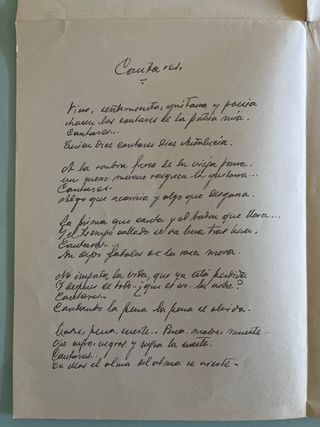 Cantares.
Vino, sentimiento, guitarra y poesía
hacen los cantares de la patria mía.
Cantares..
Quien dice cantares dice Andalucía.
A la sombra fresca de la vieja parra,
un mozo moreno rasguea la guitarra...
Cantares..
Algo que acaricia y algo que desgarra.
La prima que canta y el bordón que llora...
Y el tiempo callado se va hora tras hora.
Cantares..
Son dejos fatales de la raza mora.
No importa la vida, que ya está perdida
Y después de todo.. ¿qué es eso, la vida?
Cantares..
Cantando la pena la pena se olvida.
Madre, pena, suerte.. Pena, madre, muerte..
Ojos negros, negros y negra la suerte.
Cantares..
En ellos el alma del alma se vierte.